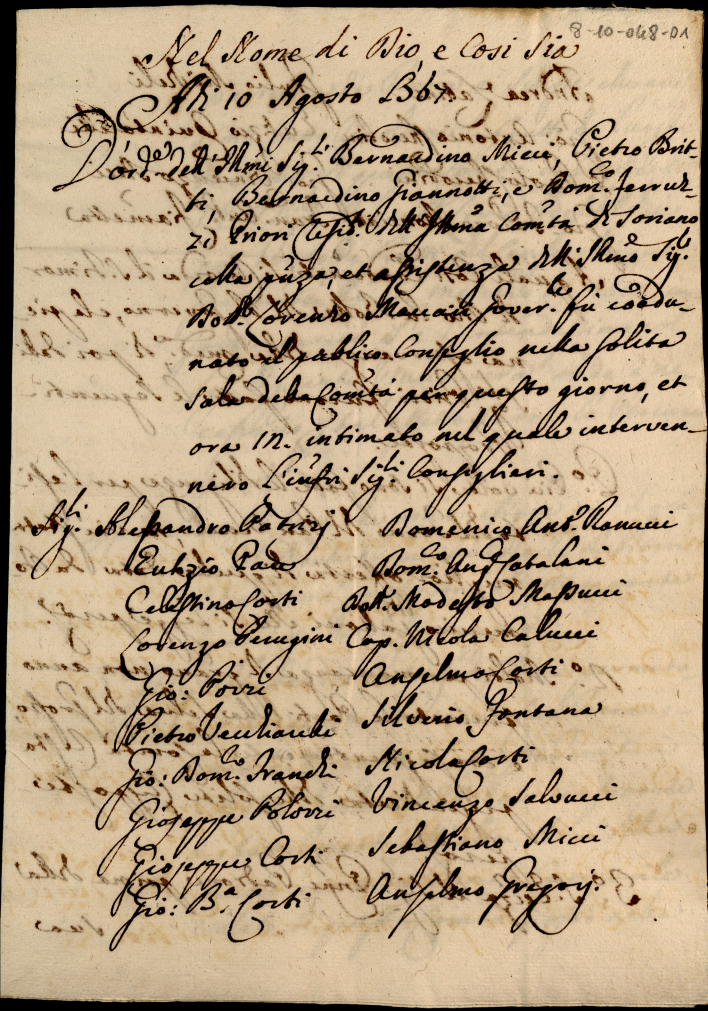 8-10-048-01
Nel Nome di Dio, e Così Sia
Adi 10 Agosto 1767
D'ord.e dell'Ill.mi Sig.li Bernardino Micci, Pietro Brit-
ti, Bernardino Giannotti, e Dom.co Ferruz-
zi Priori Resid. dell'Ill.ma Com.tà di Soriano
colla p.nza, et assistenza dell'Ill.mo Sig.
Dott. Lorenzo Gover.le fù coadu-
nato il publico Conseglio nella solita
Sala della Com.tà per questo giorno, et
ora 12. intimato nel quale interven-
nero l'infri Sig.li Conseglieri.
Sig.li Alessandro Patrizj Domenico Ant.o Ranucci
Eutizio Dom.co Ang.o Catalani
Celestino Corti Dott. Modesto Massucci
Lorenzo Perugini Cap. Nicola Calucci
Gio: Porri Anselmo Corti
Pietro Vecchiarelli Silverio Fontana
Gio: Dom.co Franchi Nicola Corti
Gioseppe Polozzi Vincenzo Salvucci
Gioseppe Corti Sebastiano Micci
Gio: B.a Corti Anselmo Gregorj.